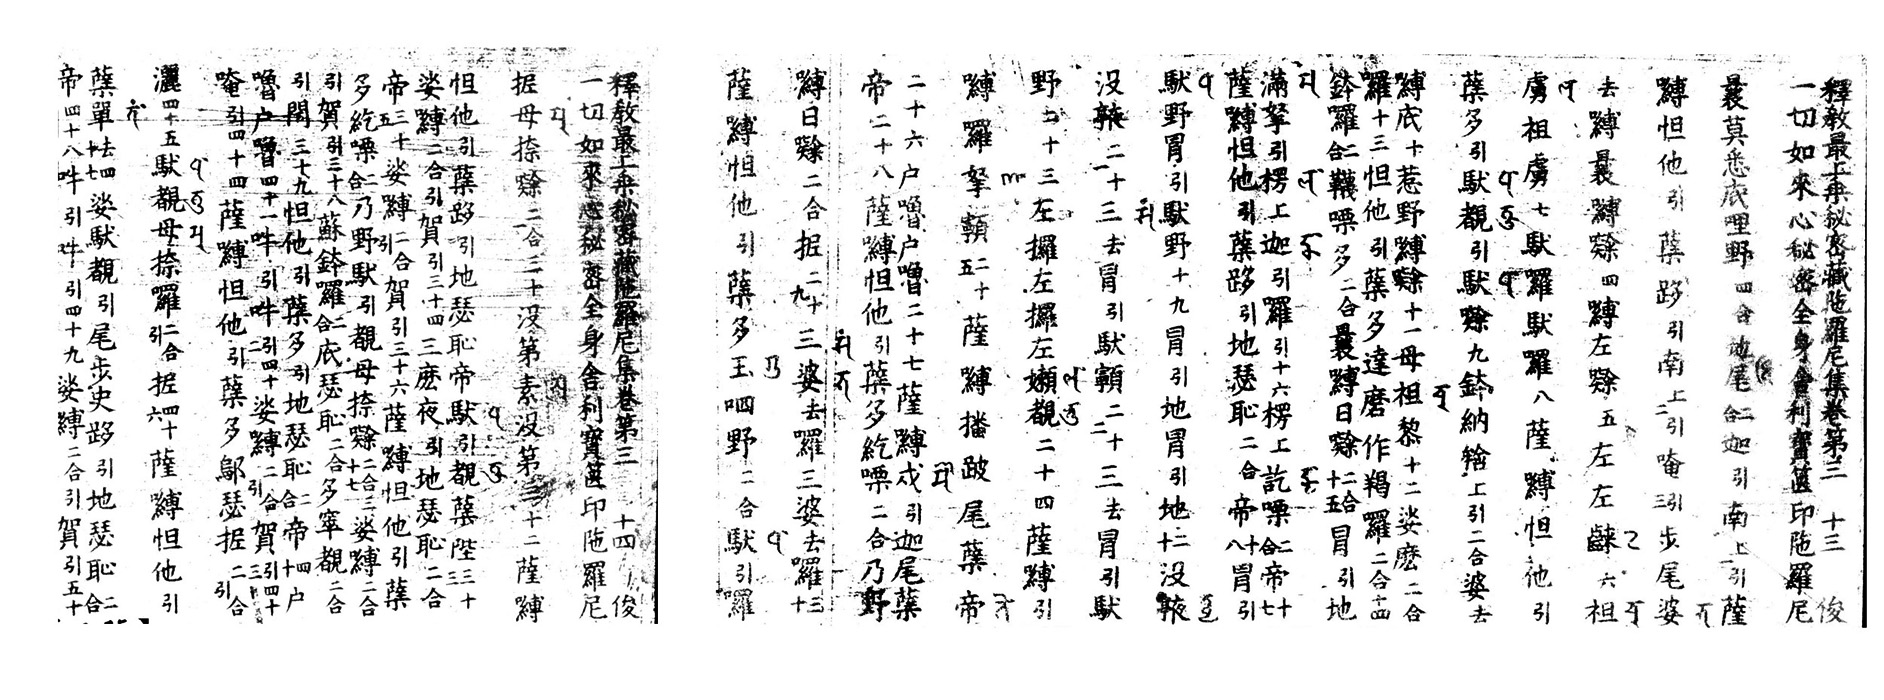 釋教最上乘秘密藏陁羅尼集卷第三 十三 俊
一切如來心秘密全身舍利寶篋印陁羅尼
曩莫悉底哩野四合地尾二合迦引南上引薩
縛怛他引蘖跢引南上引唵引步尾婆
去縛曩縛㘑四縛左㘑五左左䶩六祖
虜祖虜七馱羅馱羅八薩縛怛他引
蘖多引馱覩引馱㘑九鉢納𤚥上引二合婆去
縛底十惹野縛㘑十一母祖黎十二娑麽二合
羅十三怛他引蘖多達磨作羯羅二合十四
鉢羅二合韈㗚多二合曩縛日㘑二合十五冒引地
滿拏引楞上迦引羅引十六楞上訖㗚二合帝十七
薩縛怛他引蘖跢引地瑟恥二合帝十八冒引
馱野冒引馱野十九冒引地冒引地二十沒𠆙
沒𠆙二十三去冒引馱顊二十三去冒引馱
野二十三左攞左攞左嬾覩二十四薩縛引
縛羅拏顊二十五薩縛播跛尾蘖帝
二十六户嚕户嚕二十七薩縛戍引迦尾蘖
帝二十八薩縛怛他引蘖多紇㗚二合乃野
縛日㘑二合抳二十九三婆去羅三婆去羅三十
薩縛怛他引蘖多玉呬野二合馱引羅
釋教最上乘秘密藏陁羅尼集卷第三 十四 俊
一切如來心秘密全身舍利寶篋印陁羅尼
抳母捺㘑二合三十沒第素沒第三十二薩縛
怛他引蘖跢引地瑟恥帝馱引覩蘖陛三十
娑縛二合引賀引三十四三麽夜引地瑟恥二合
帝三十五娑縛二合引賀引三十六薩縛怛他引蘖
多紇㗚二合乃野馱引覩母捺㘑二合三十七娑縛二合
引賀引三十八蘇鉢羅二合底瑟恥二合多窣覩二合
引閇三十九怛他引蘖多引地瑟恥二合帝四十户
嚕户嚕四十一吽引吽引四十二娑縛二合引賀引四十三
唵引四十四薩縛怛他引蘖多鄔瑟抳二合引
灑四十五馱覩母捺羅二合引抳四十六薩縛怛他引
蘖單去四十七娑馱覩引尾步史跢引地瑟恥二合
帝四十八吽引吽引四十九娑縛二合引賀引五十